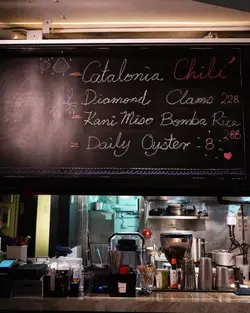 = Catalonia Chili
= Diamond Clams 228
= Kani Miso Bomba Rice 288
= Daily Oyster : 8